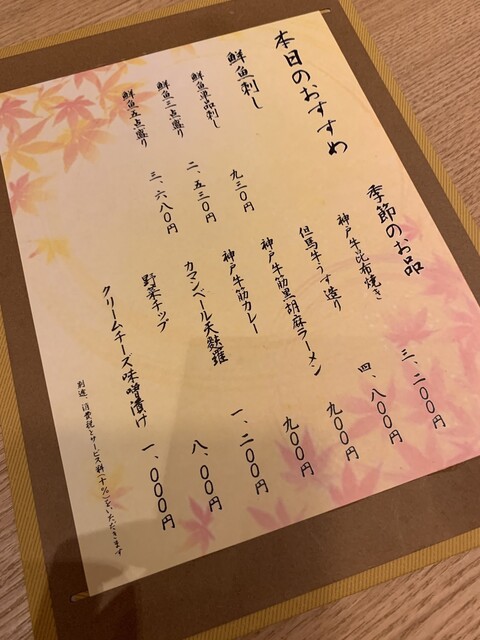 本日のおすすめ
鮮魚刺し
鮮魚単品刺し 九三〇円
鮮魚三点盛り 二、五三〇円
鮮魚五点盛り 三、六八〇円
季節のお品
神戸牛昆布焼き 三、二〇〇円
但馬牛うす造り 四、八〇〇円
神戸牛筋黒胡麻ラーメン 九〇〇円
神戸牛筋カレー 九〇〇円
カマンベール天麩羅 一、二〇〇円
野菜チップ 八、〇〇円
クリームチーズ味噌漬け 一、〇〇〇円
別途、消費税とサービス料(十%)を、いただきます